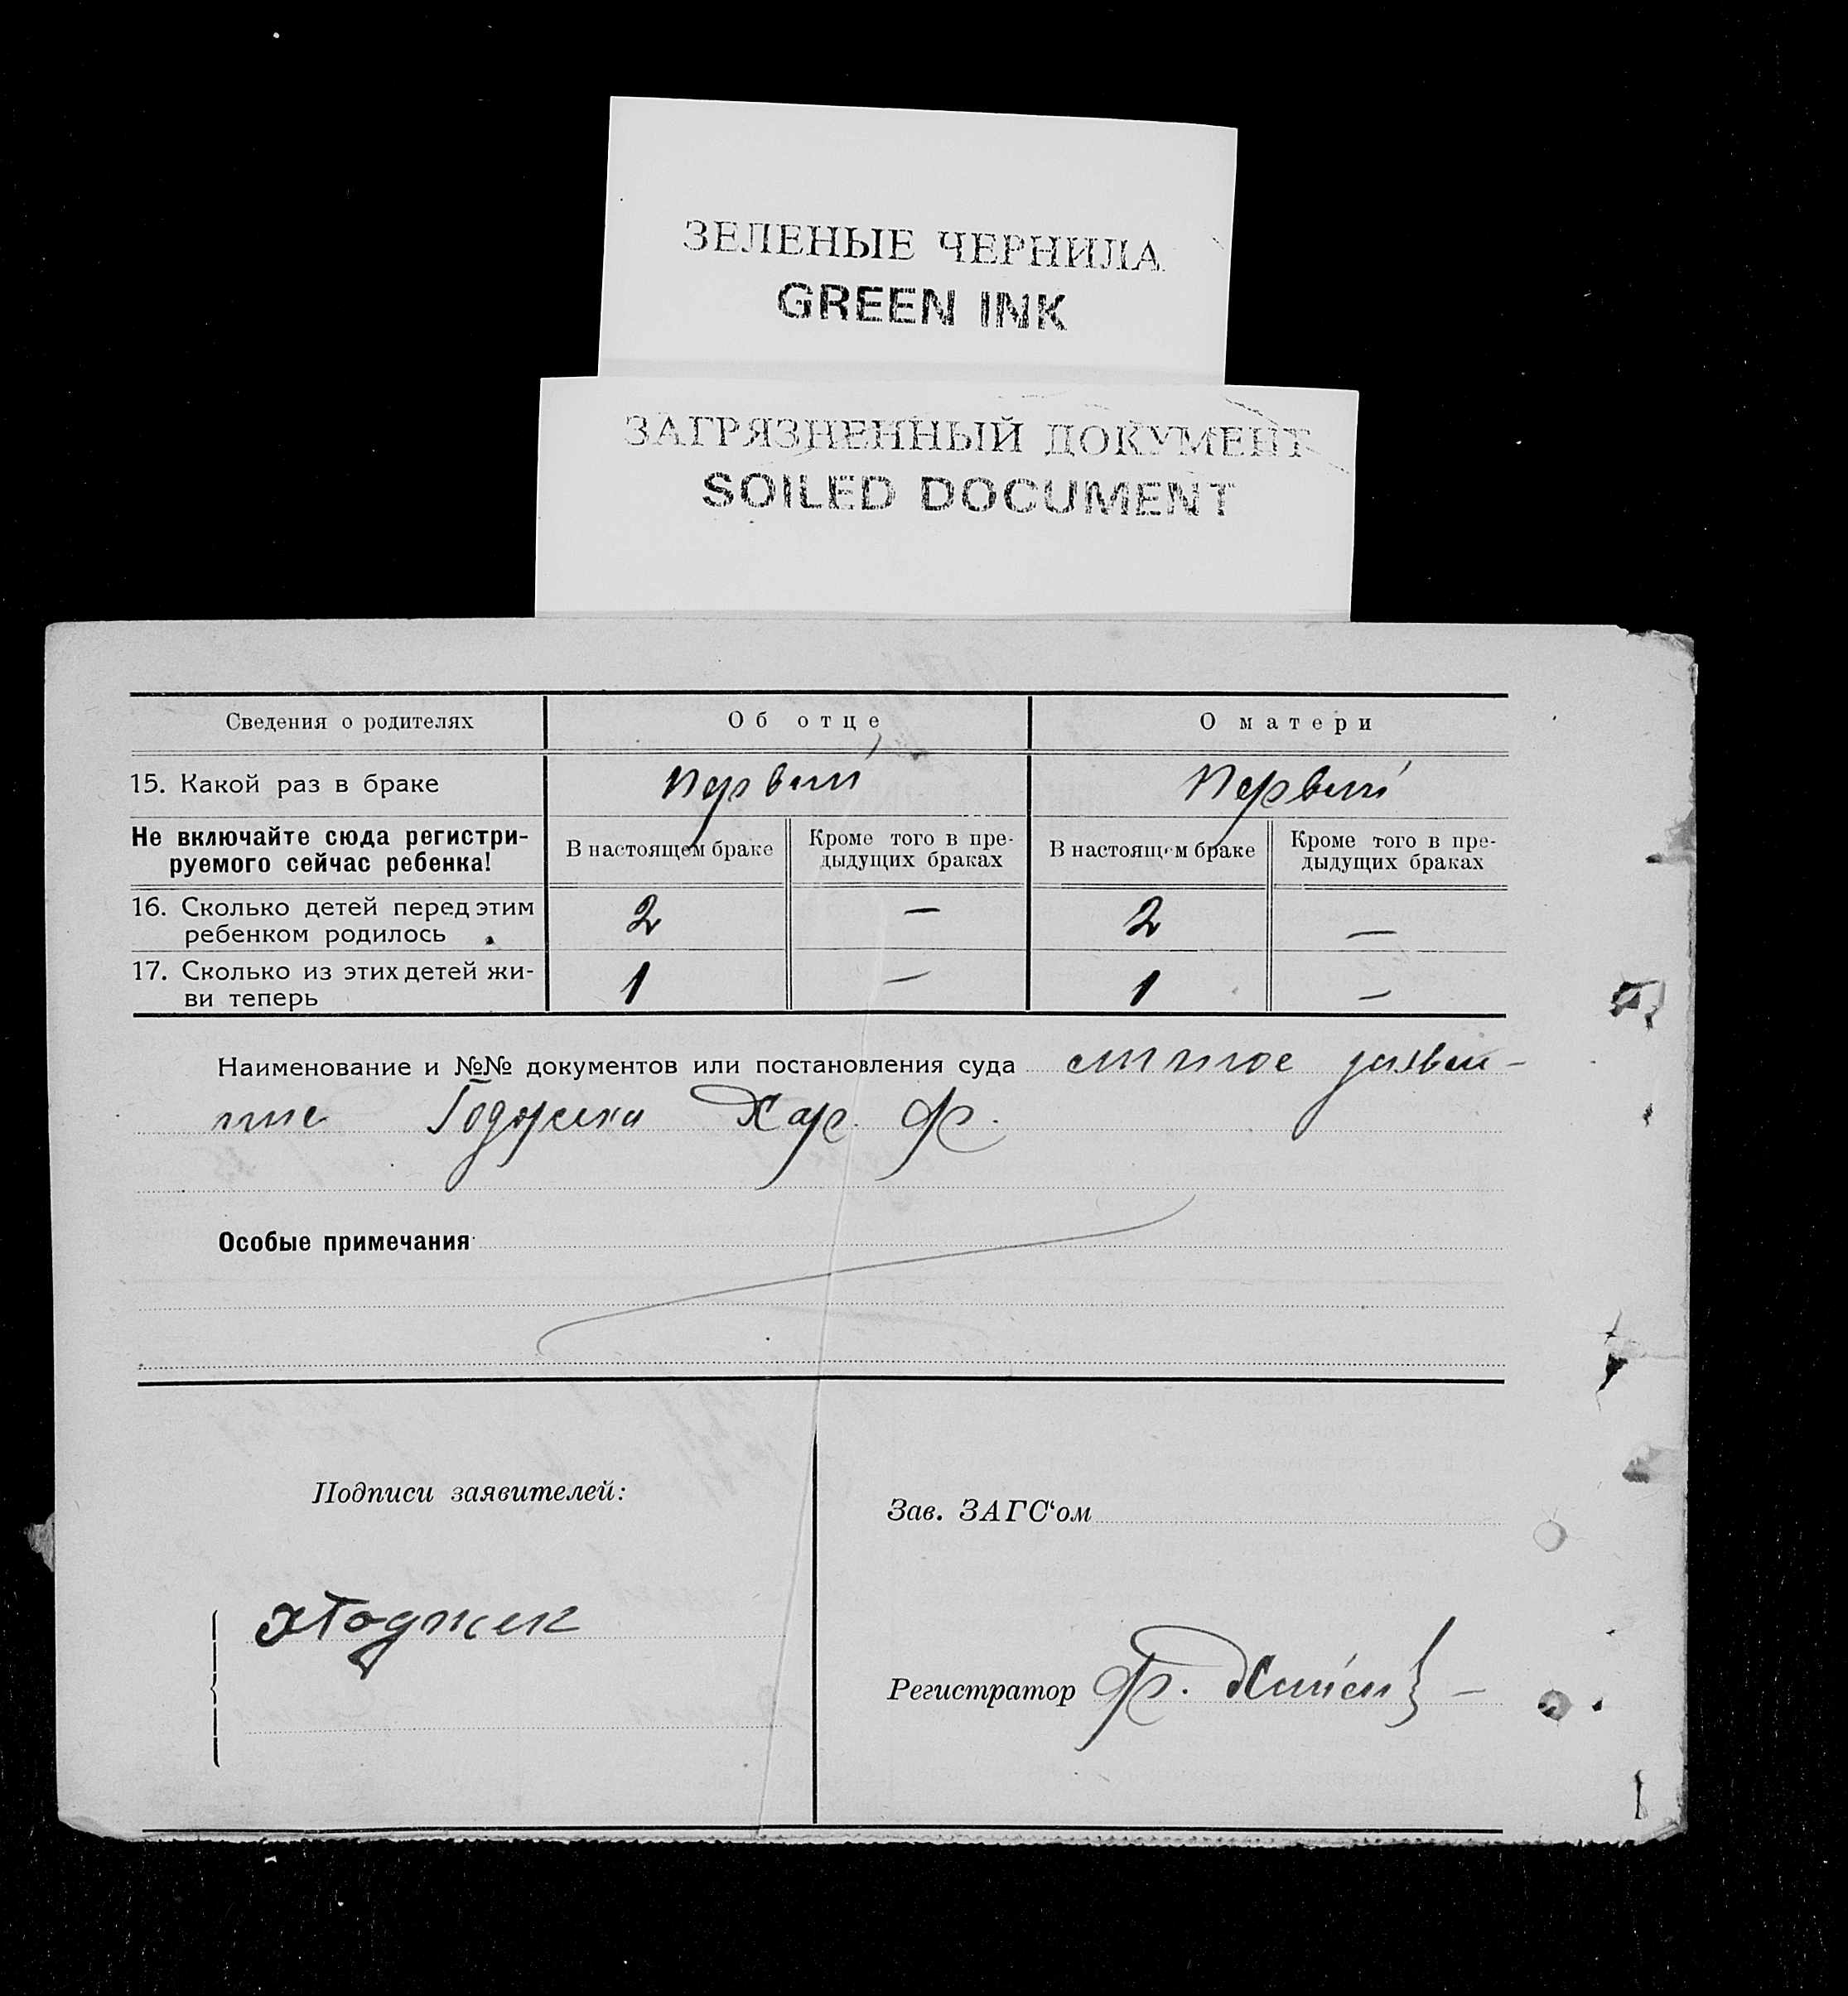 ЗЕЛЕНЫЕ ЧЕРНИЛА
GREEN INK
ЗАГРЯЗНЕННЫЙ ДОКУМЕНТ
SOILED DOCUMENT
Сведения о родителях Об отце О матери
15. Какой раз в браке Первый Первый
Не включайте сюда регистри-
руемого сейчас ребенка!
В настоящем браке
Кроме того в пре-
дыдущих браках
В настоящем браке
Кроме того в пре-
дыдущих браках
16. Сколько детей перед этим
ребенком родилось 2 — 2 —
17. Сколько из этих детей жи-
ви теперь 1 — 1 —
Наименование и №№ документов или постановления суда личное заявле-
ние Годжека Хар. Ф.
Особые примечания
Подписи заявителей:
Зав. ЗАГС‘ом
ХГоджек
Регистратор Ф.